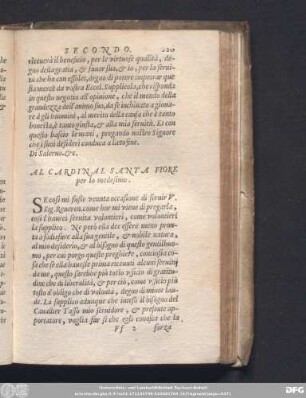 SECONDO. 220
riceuerà il beneficio, per le virtuose qualità, de-
gno della gratia, & fauor suo, & io, per la serui-
tù che ho con essolei, degno di potere impetrar que
sta mercè da vostra Eccel. Supplicola, che risponda
in questo negotio all'opinione, che il mondo della
grandezza dell'animo suo, da se inchinato a gioua-
re a gli huomini, al merito della causa che è tanto
honesta, & tanto giusta, & alla mia seruitù. Et con
questo bascio le mani, pregando nostro Signore
che i suoi desideri conduca a lieto fine.
Di Salerno. &c.
AL CARDINAL SANTA FIORE
per lo medesimo.
SE così mi fusse venuta occasione di seruir V.
Sig. Reueren. come hor mi viene di pregarla,
così l'haurei seruita volontieri, come volontieri
la supplico. Ne però ella dee essere meno pron-
ta a sodisfare alla sua gentile, & nobile natura,
al mio desiderio, & al bisogno di questo gentilhuo-
mo, per cui porgo questi preghieri, con ciosia co-
sa che se ella hauesse prima riceuuti alcuni seruitii
da me, questo sarebbe più tosto vfficio di gratitudi-
ne che di liberalità, & per ciò, come vfficio più
tosto d'obligo che di volontà, degno di minor lau-
de. La supplico adunque che inteso il bisogno del
Caualier Tasso mio seruidore, & presente ap-
portatore, voglia far sì che egli conosca che la
Ff 2 forza